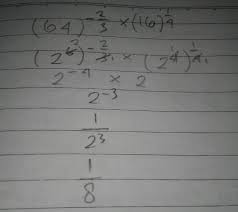 (64)^{-2/3} × (16)^{1/4}
(2^6)^{-2/3} × (2^4)^{1/4}
2^{-4} × 2
2^{-3}
1/2^3
1/8